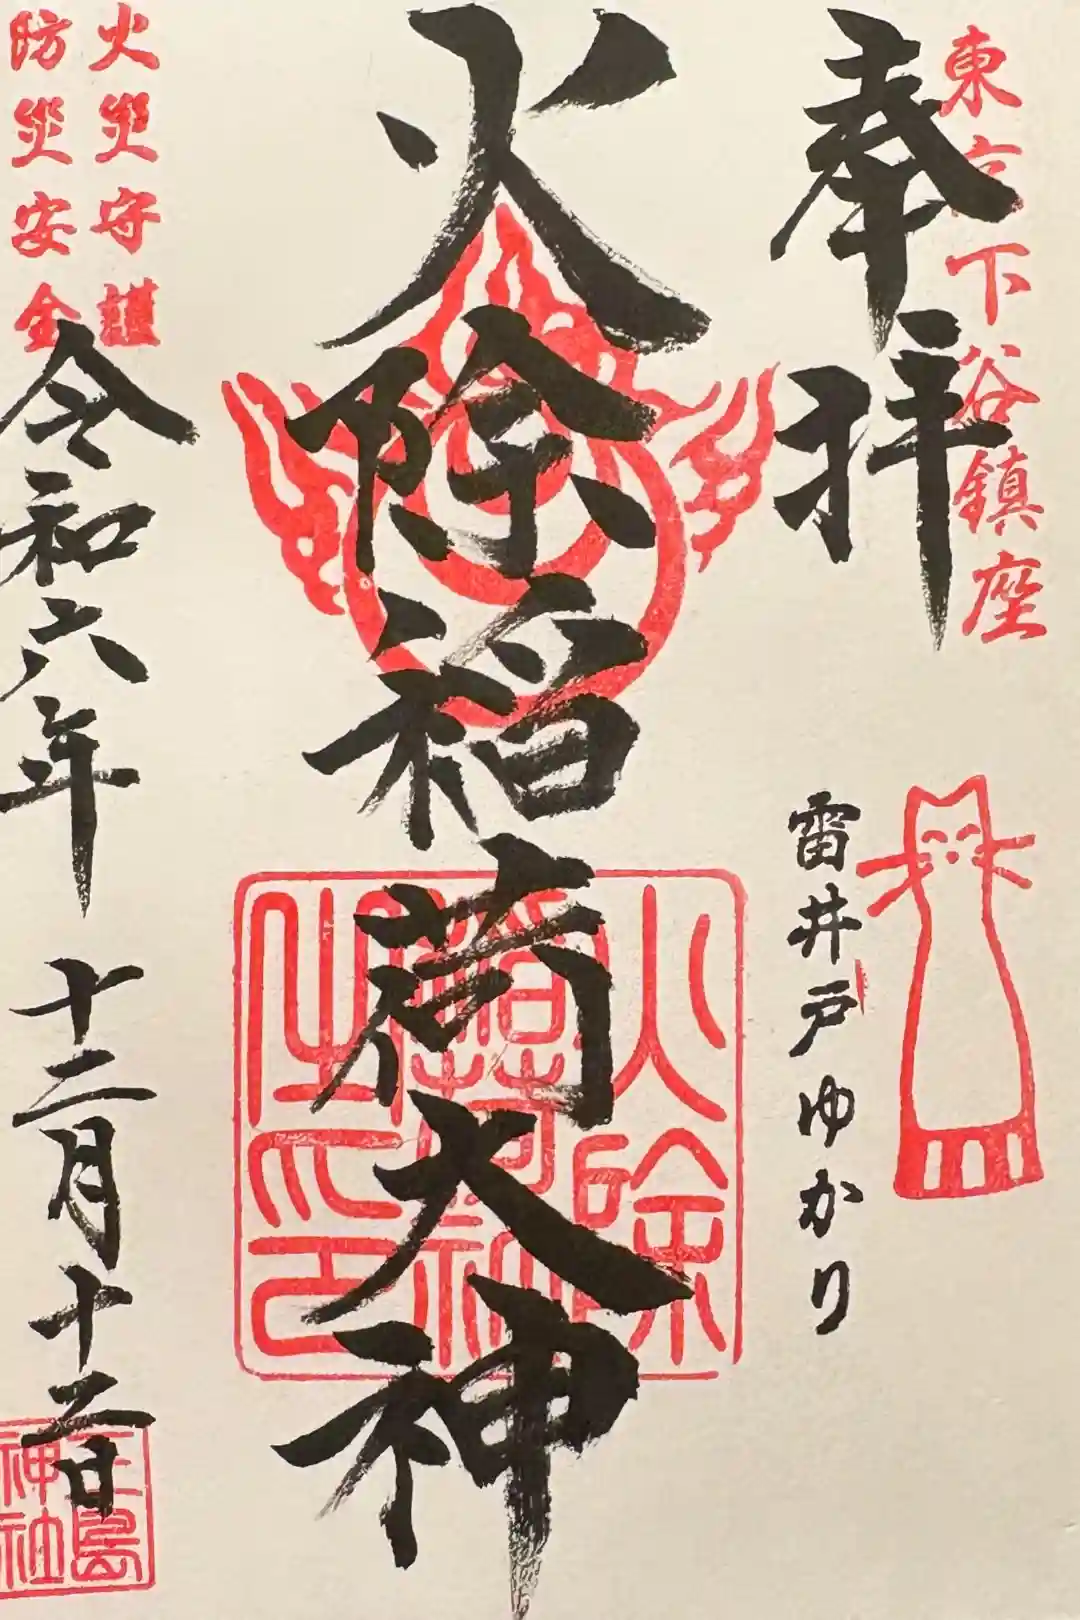 東京下谷鎮座
奉拝
雷井戸ゆかり
火除稲荷大神
火除
之印
火災守護
防災安全
令和六年 十二月十二日
三島
神社